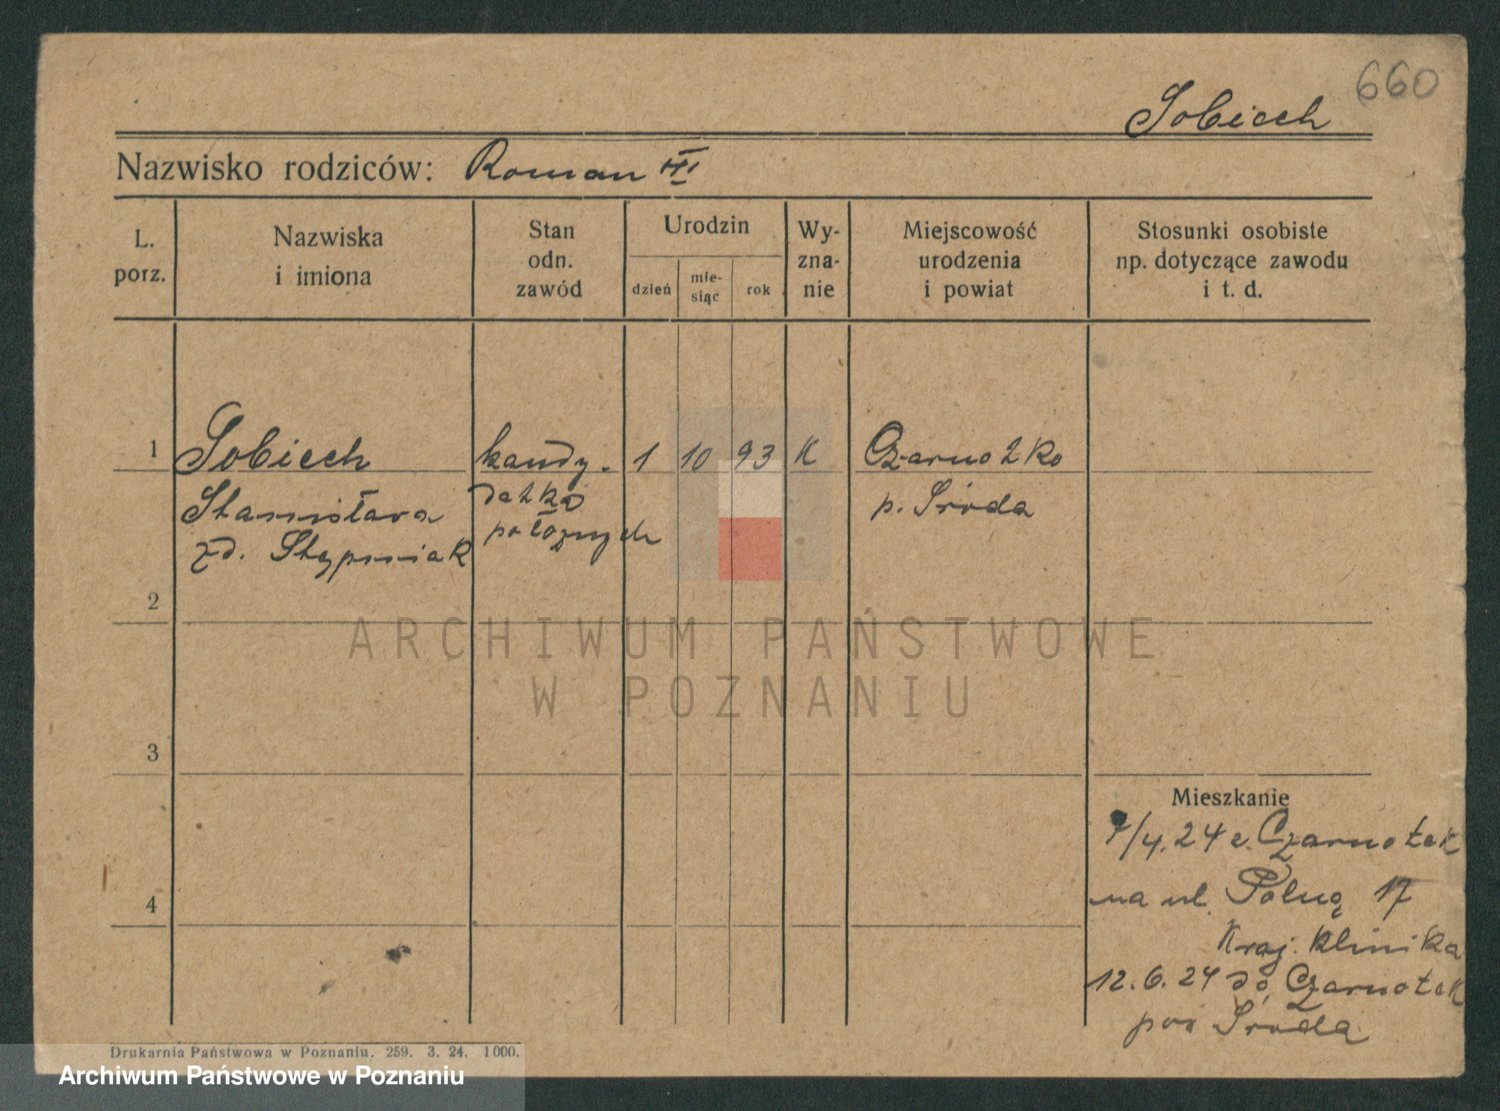 660
Sobiech
Nazwisko rodziców: Roman III
L. porz.
Nazwiska i imiona
Stan odn. zawód
Urodzin
dzień
mie-siąc
rok
Wy-zna-nie
Miejscowość urodzenia i powiat
Stosunki osobiste np. dotyczące zawodu i t. d.
1 Sobiech kandy- 1 10 93 K Czarnotko
Stanisława datka p. Środa
zd. Stępniak położnych
2
3
4
Mieszkanie
1/4. 24 z Czarnotek
na ul. Polną 17
Kraj. Klinika
12. 6. 24 do Czarnotek
pow Środa
ARCHIWUM PAŃSTWOWE
W POZNANIU
Drukarnia Państwowa w Poznaniu. 259. 3. 24. 1000.
Archiwum Państwowe w Poznaniu